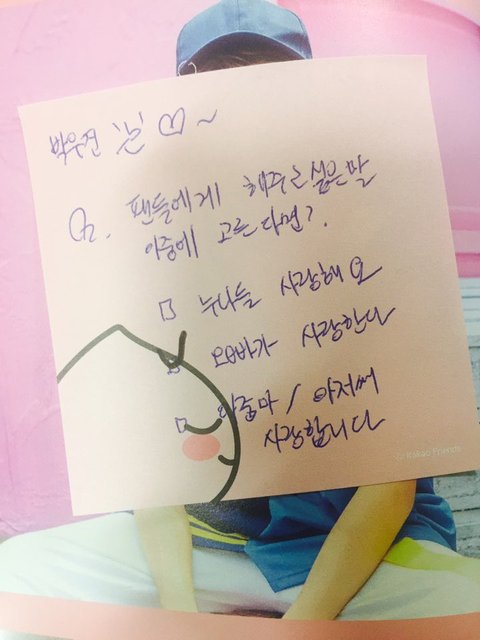 박우진 님 ♡~
Q. 팬들에게 해주고 싶은말
이중에 고른다면?
□ 누나들 사랑해요
☑ 오빠가 사랑한다
□ 아줌마 / 아저씨
사랑합니다
© Kakao Friends